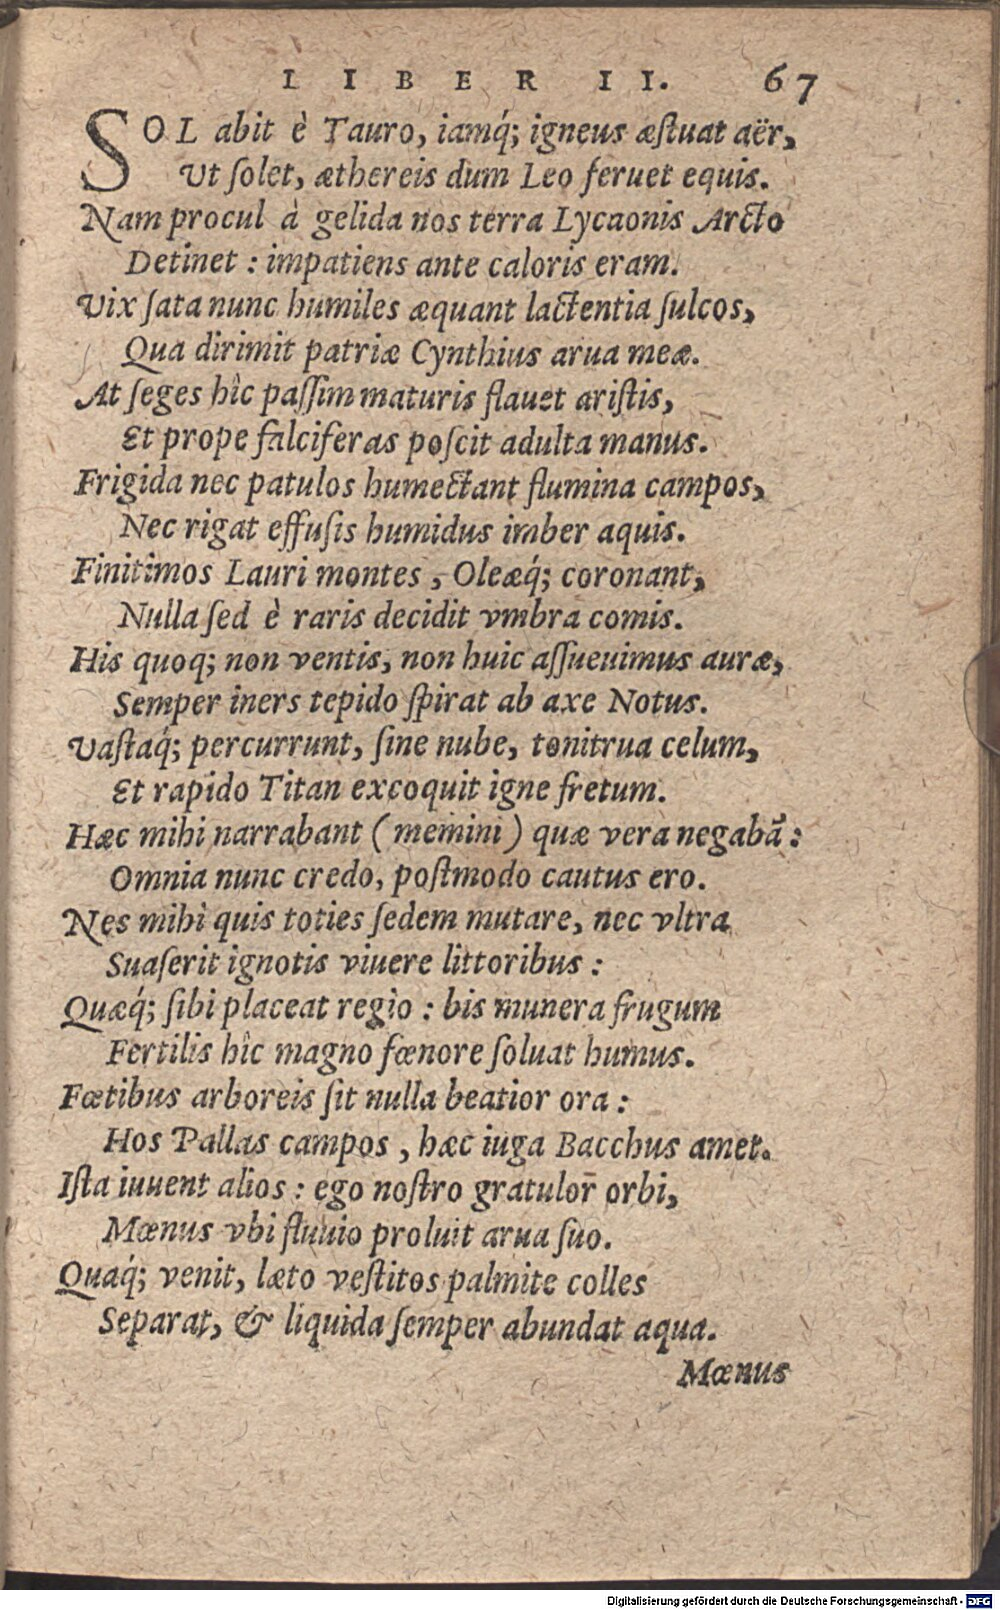 LIBER II. 67
SOL abit è Tauro, iamq́; igneus æſtuat aër,
Vt ſolet, æthereis dum Leo feruet equis.
Nam procul à gelida nos terra Lycaonis Arcto
Detinet : impatiens ante caloris eram.
Vix ſata nunc humiles æquant lactentia ſulcos,
Qua dirimit patriæ Cynthius arua meæ.
At ſeges hîc paſſim maturis flauet ariſtis,
Et prope falciferas poſcit adulta manus.
Frigida nec patulos humectant flumina campos,
Nec rigat effuſis humidus imber aquis.
Finitimos Lauri montes, Oleæq́; coronant,
Nulla ſed è raris decidit vmbra comis.
His quoq; non ventis, non huic aſſueuimus auræ,
Semper iners tepido ſpirat ab axe Notus.
Vaſtaq́; percurrunt, ſine nube, tonitrua celum,
Et rapido Titan excoquit igne fretum.
Hæc mihi narrabant (memini) quæ vera negabā:
Omnia nunc credo, poſtmodo cautus ero.
Nes mihi quis toties ſedem mutare, nec vltra
Suaſerit ignotis viuere littoribus :
Quæq́; ſibi placeat regio : bis munera frugum
Fertilis hîc magno fœnore ſoluat humus.
Fœtibus arboreis ſit nulla beatior ora :
Hos Pallas campos, hæc iuga Bacchus amet.
Iſta iuuent alios : ego noſtro gratulor̄ orbi,
Mœnus vbi fluuio proluit arua ſuo.
Quaq́; venit, læto veſtitos palmite colles
Separat, & liquida ſemper abundat aqua.
Mœnus
Digitalisierung gefördert durch die Deutsche Forschungsgemeinschaft - DFG